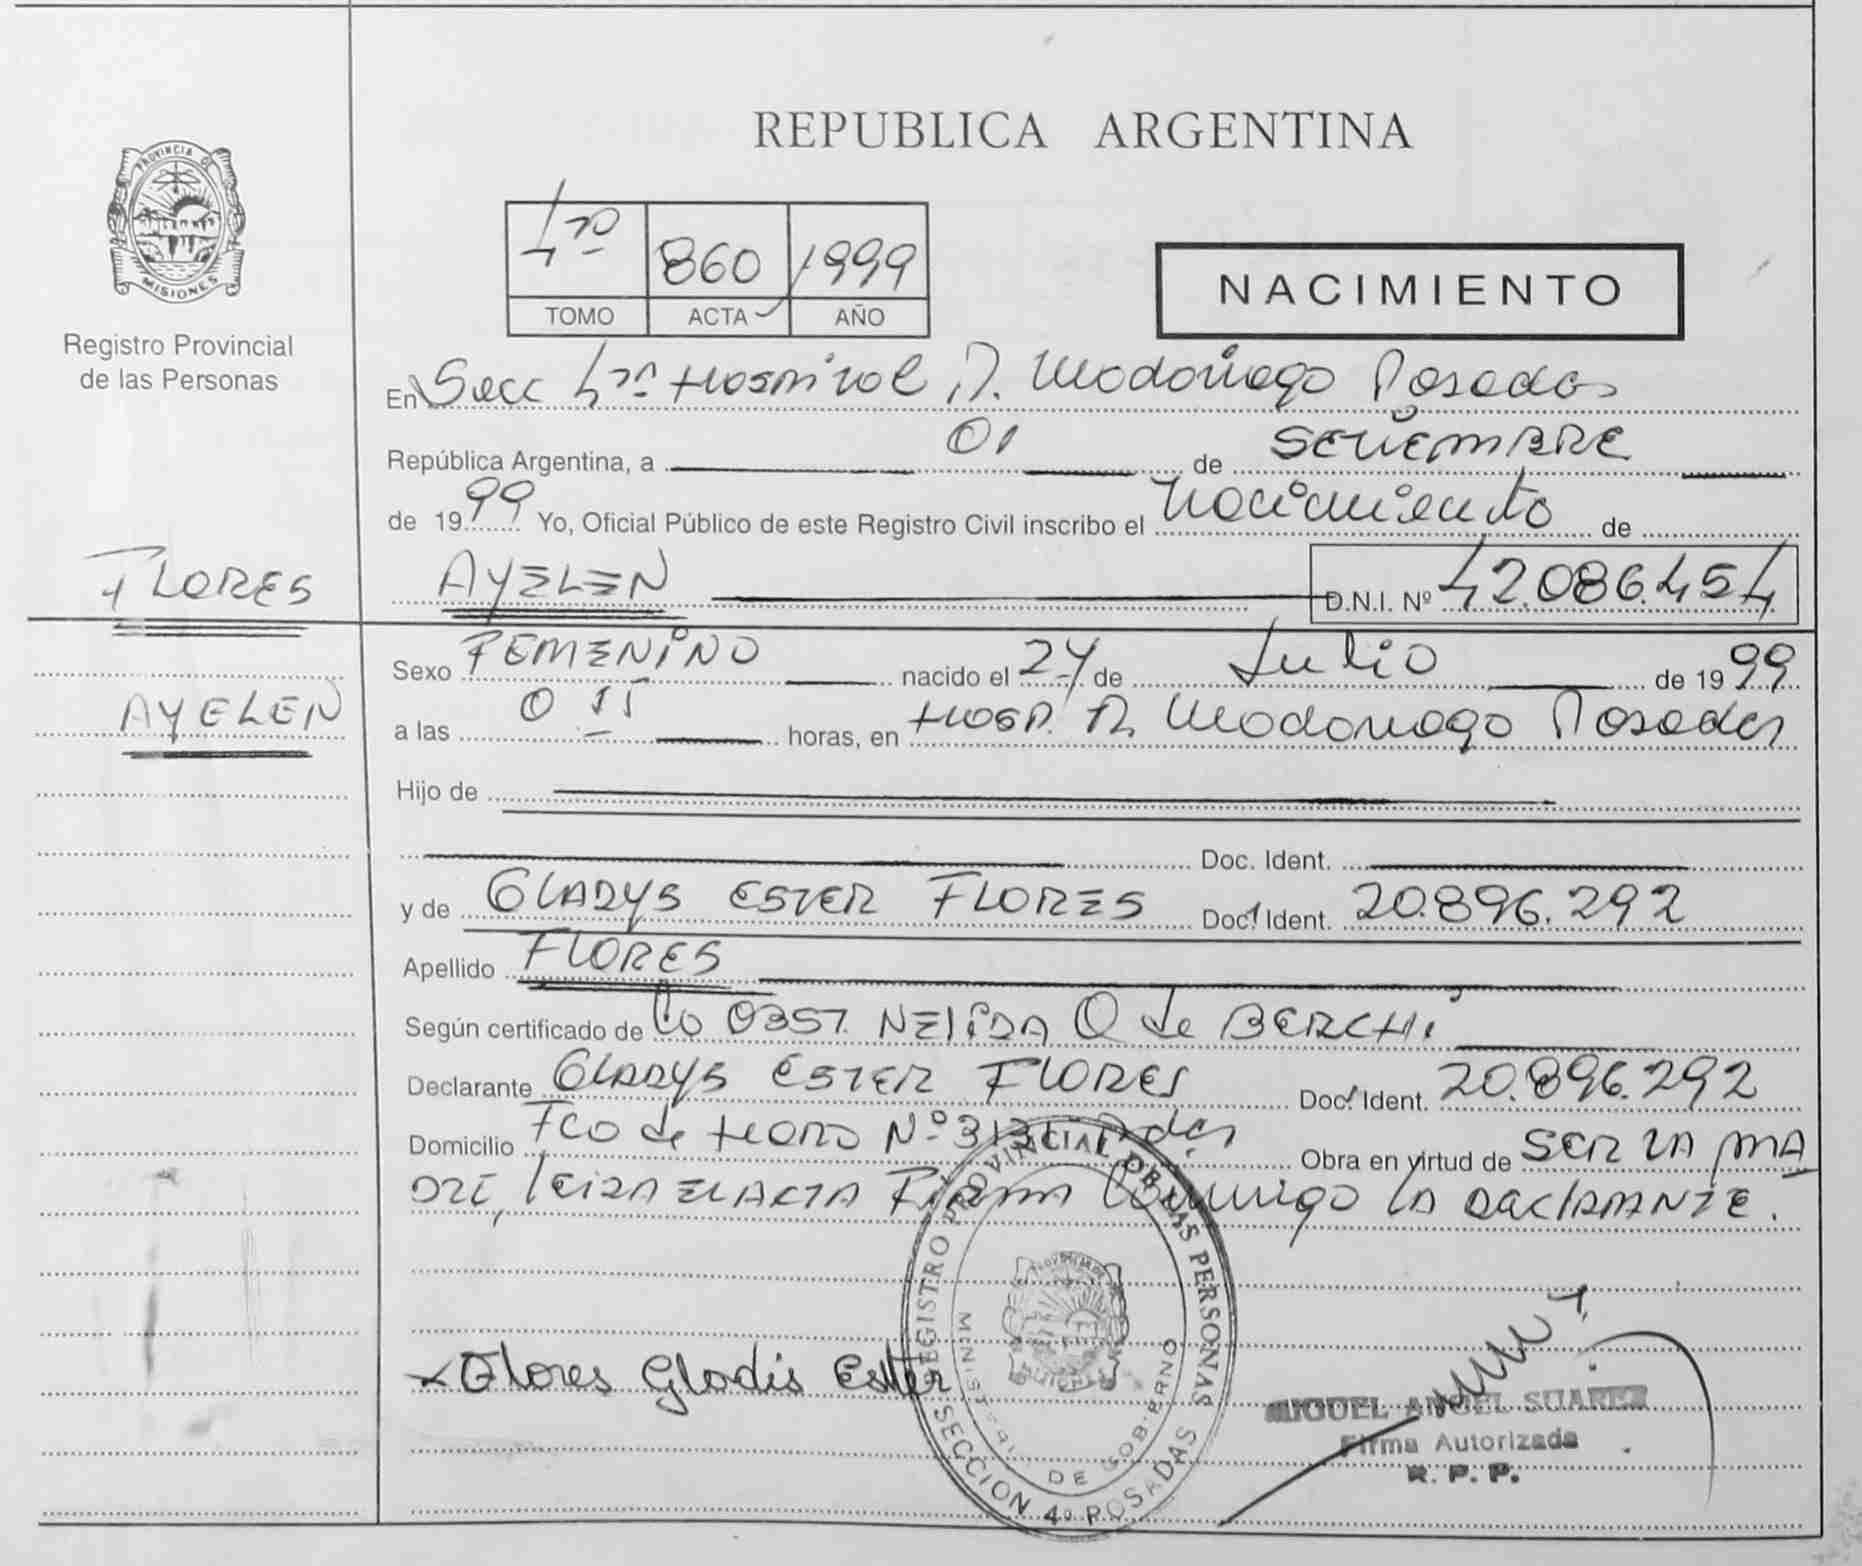 REPUBLICA ARGENTINA
PROVINCIA D
MISIONES
Registro Provincial
de las Personas
4to 860 1999
TOMO ACTA AÑO
NACIMIENTO
En Secc 4ta Hospital R. Madariaga Posadas
República Argentina, a 01 de SETIEMBRE
de 1999 Yo, Oficial Público de este Registro Civil inscribo el Nacimiento de
FLORES AYELEN D.N.I. Nº 42.086.454
Sexo FEMENINO nacido el 24 de Julio de 1999
AYELEN
a las 0 horas, en HOSP. R. Madariaga Posadas
Hijo de
Doc. Ident.
y de GLADYS ESTER FLORES Doc. Ident. 20.896.292
Apellido FLORES
Según certificado de La OBST. NELIDA O de BERCHI
Declarante GLADYS ESTER FLORES Doc. Ident. 20.896.292
Domicilio Fco de Haro Nº Pdas Obra en virtud de SER LA MA
DRE, leida EL ACTA FIRMA Conmigo LA DECLARANTE.
REGISTRO PROVINCIAL DE LAS PERSONAS
MINISTERIO DE GOBIERNO
SECCION 4º POSADAS
Flores Gladis Ester
MIGUEL ANGEL SUAREZ
Firma Autorizada
R. P. P.